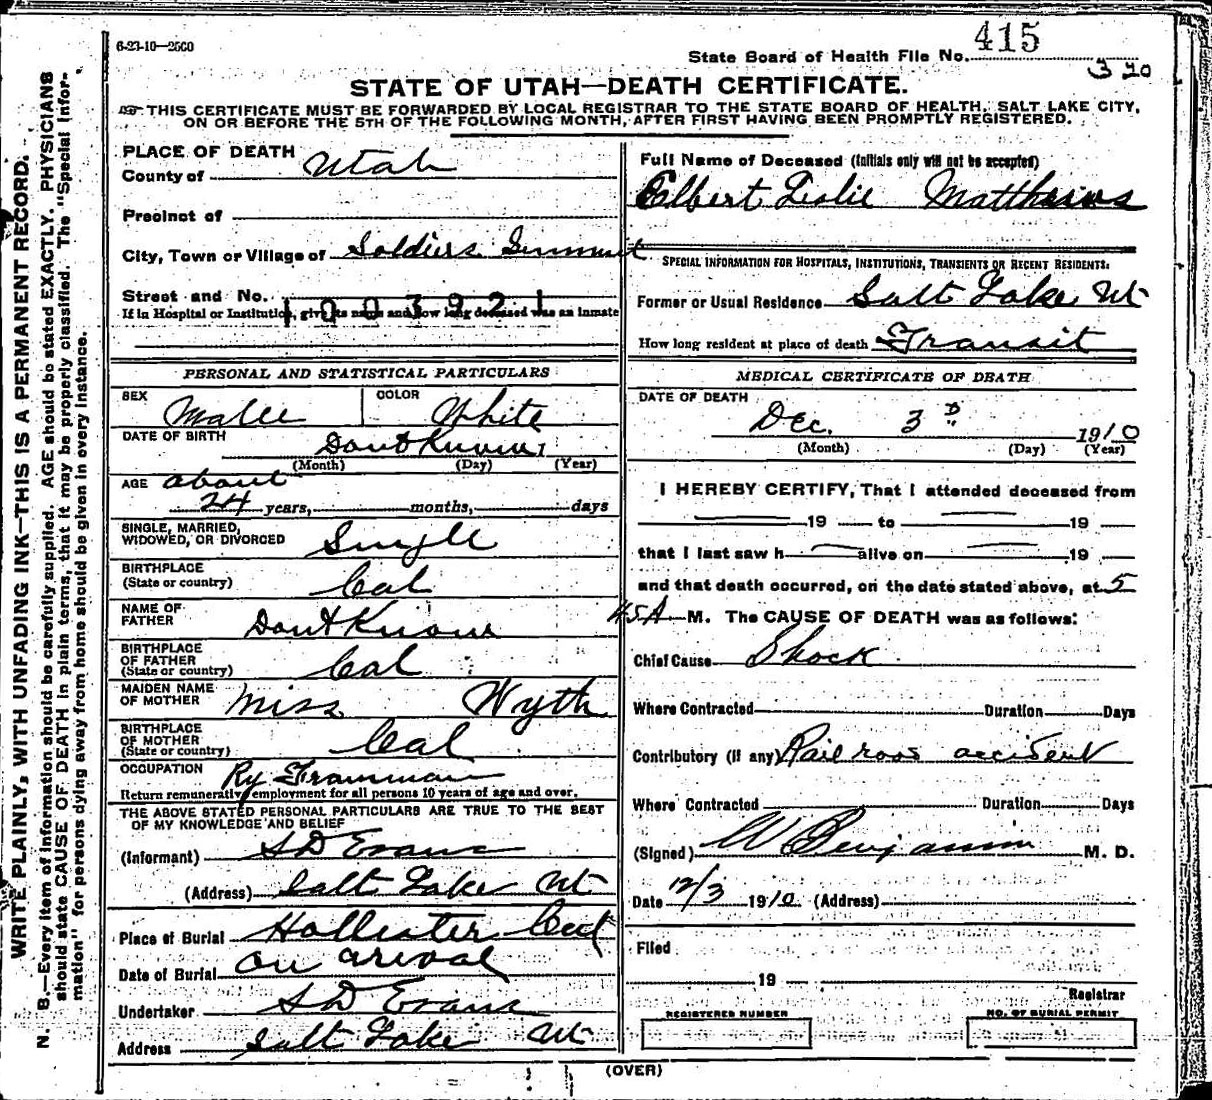 6-23-10—2500
State Board of Health File No. 415
3 20
STATE OF UTAH—DEATH CERTIFICATE.
THIS CERTIFICATE MUST BE FORWARDED BY LOCAL REGISTRAR TO THE STATE BOARD OF HEALTH, SALT LAKE CITY,
ON OR BEFORE THE 5TH OF THE FOLLOWING MONTH, AFTER FIRST HAVING BEEN PROMPTLY REGISTERED.
PLACE OF DEATH
County of Utah
Precinct of
City, Town or Village of Soldiers Summit
Street and No.
1003921
If in Hospital or Institution, give its name and how long deceased was an inmate
PERSONAL AND STATISTICAL PARTICULARS
SEX Male
COLOR White
DATE OF BIRTH Dont Know
(Month) (Day) (Year)
AGE about
24 years, months, days
SINGLE, MARRIED,
WIDOWED, OR DIVORCED Single
BIRTHPLACE
(State or country) Cal
NAME OF
FATHER Dont Know
BIRTHPLACE
OF FATHER
(State or country) Cal
MAIDEN NAME
OF MOTHER Miss Wyth
BIRTHPLACE
OF MOTHER
(State or country) Cal
OCCUPATION Ry Trainman
Return remunerative employment for all persons 10 years of age and over.
THE ABOVE STATED PERSONAL PARTICULARS ARE TRUE TO THE BEST
OF MY KNOWLEDGE AND BELIEF
(Informant) S D Evans
(Address) Salt Lake Ut
Place of Burial Hollister Cal
Date of Burial On arival
Undertaker S D Evans
Address Salt Lake Ut
Full Name of Deceased (Initials only will not be accepted)
Elbert Leslie Matthews
SPECIAL INFORMATION FOR HOSPITALS, INSTITUTIONS, TRANSIENTS OR RECENT RESIDENTS.
Former or Usual Residence Salt Lake Ut
How long resident at place of death Transit
MEDICAL CERTIFICATE OF DEATH
DATE OF DEATH
Dec. 3D 1910
(Month) (Day) (Year)
I HEREBY CERTIFY, That I attended deceased from
19 to 19
that I last saw h alive on 19
and that death occurred, on the date stated above, at 5
45A M. The CAUSE OF DEATH was as follows:
Chief Cause Shock
Where Contracted Duration Days
Contributory (if any) Rail road accident
Where Contracted Duration Days
(Signed) W Benjamin M. D.
Date 12/3 1910 (Address)
Filed
19
Registrar
REGISTERED NUMBER
NO. OF BURIAL PERMIT
(OVER)
WRITE PLAINLY, WITH UNFADING INK—THIS IS A PERMANENT RECORD.
N. B.—Every item of information should be carefully supplied. AGE should be stated EXACTLY. PHYSICIANS
should state CAUSE OF DEATH in plain terms, that it may be properly classified. The "Special Infor-
mation" for persons dying away from home should be given in every instance.